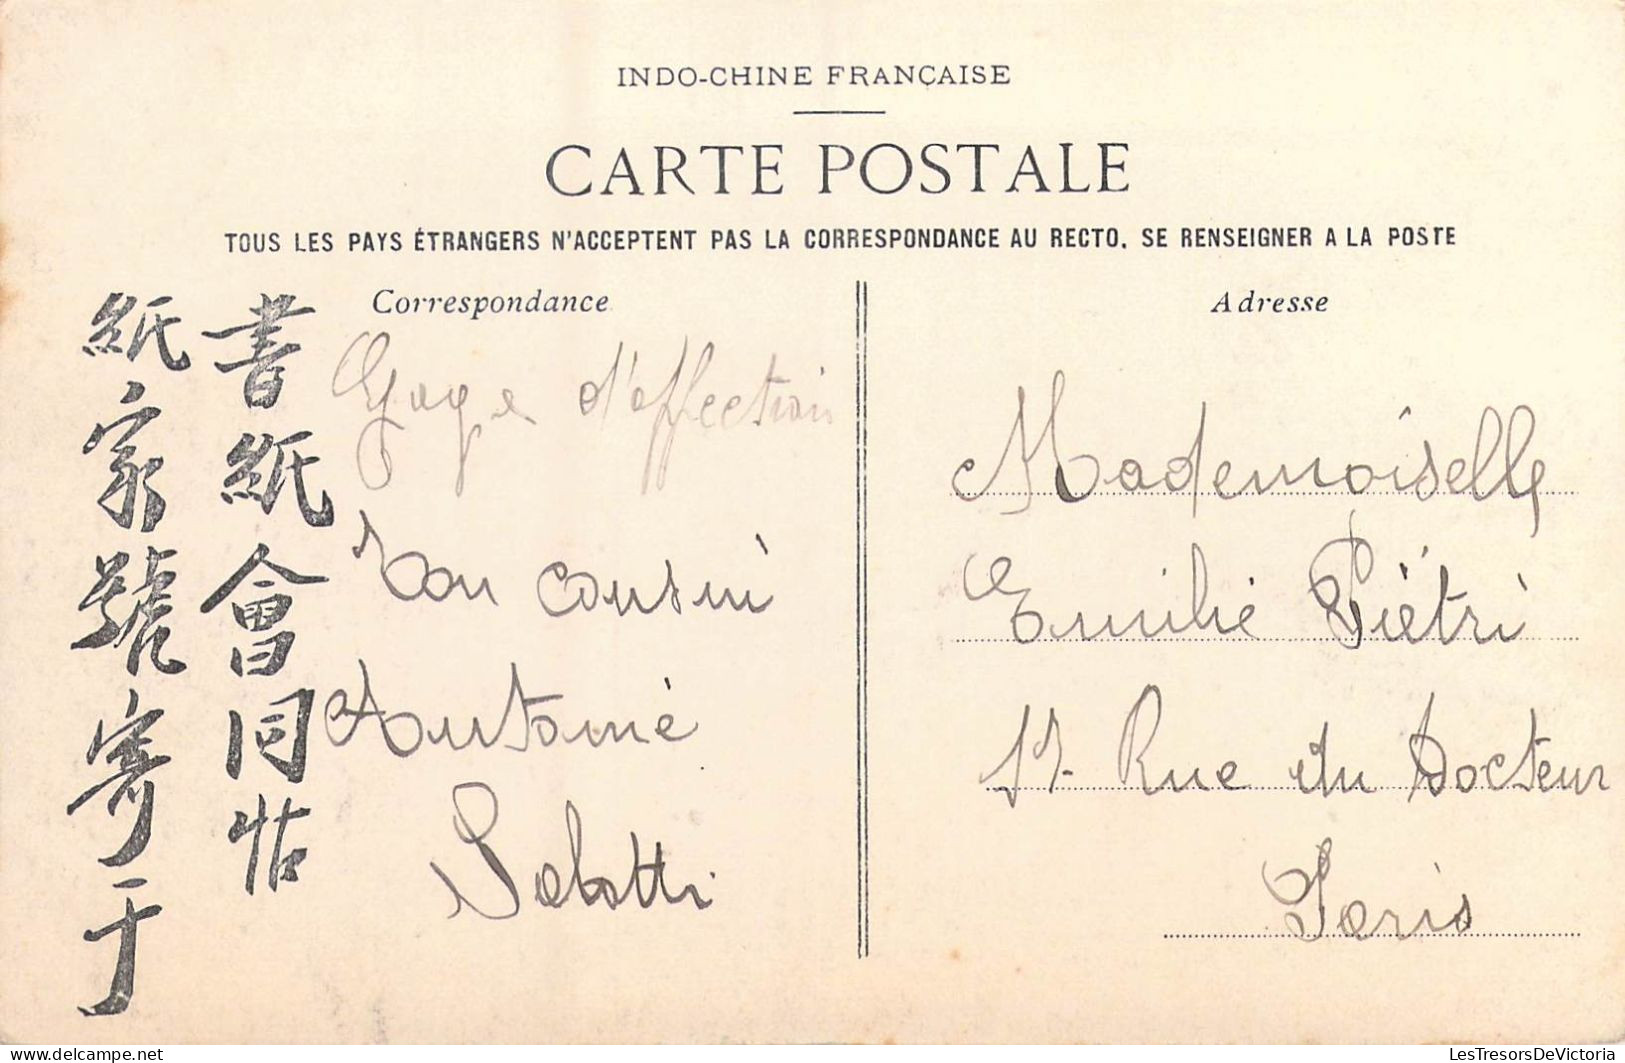 INDO-CHINE FRANÇAISE
CARTE POSTALE
TOUS LES PAYS ÉTRANGERS N'ACCEPTENT PAS LA CORRESPONDANCE AU RECTO. SE RENSEIGNER A LA POSTE
書紙會同帖
紙家號寄于
Correspondance
Gage d'affection
Ton cousin
Antoine
Adresse
Mademoiselle
Emilie Piétri
Rue du Docteur
Paris
delcampe.net
LesTresorsDeVictoria